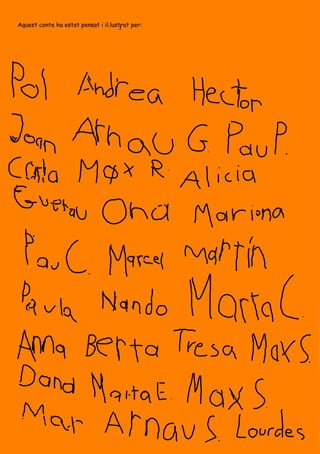 Aquest conte ha estat pensat i il.lustrat per:
Pol Andrea Hector
Joan Arnau G. Pau P.
Carla Max R. Alicia
Guerau Ona Mariona
Pau C. Marcel Martín
Paula Nando Marta C.
Anna Berta Tresa Max S.
David Marta E. Max S.
Mar Arnau S. Lourdes